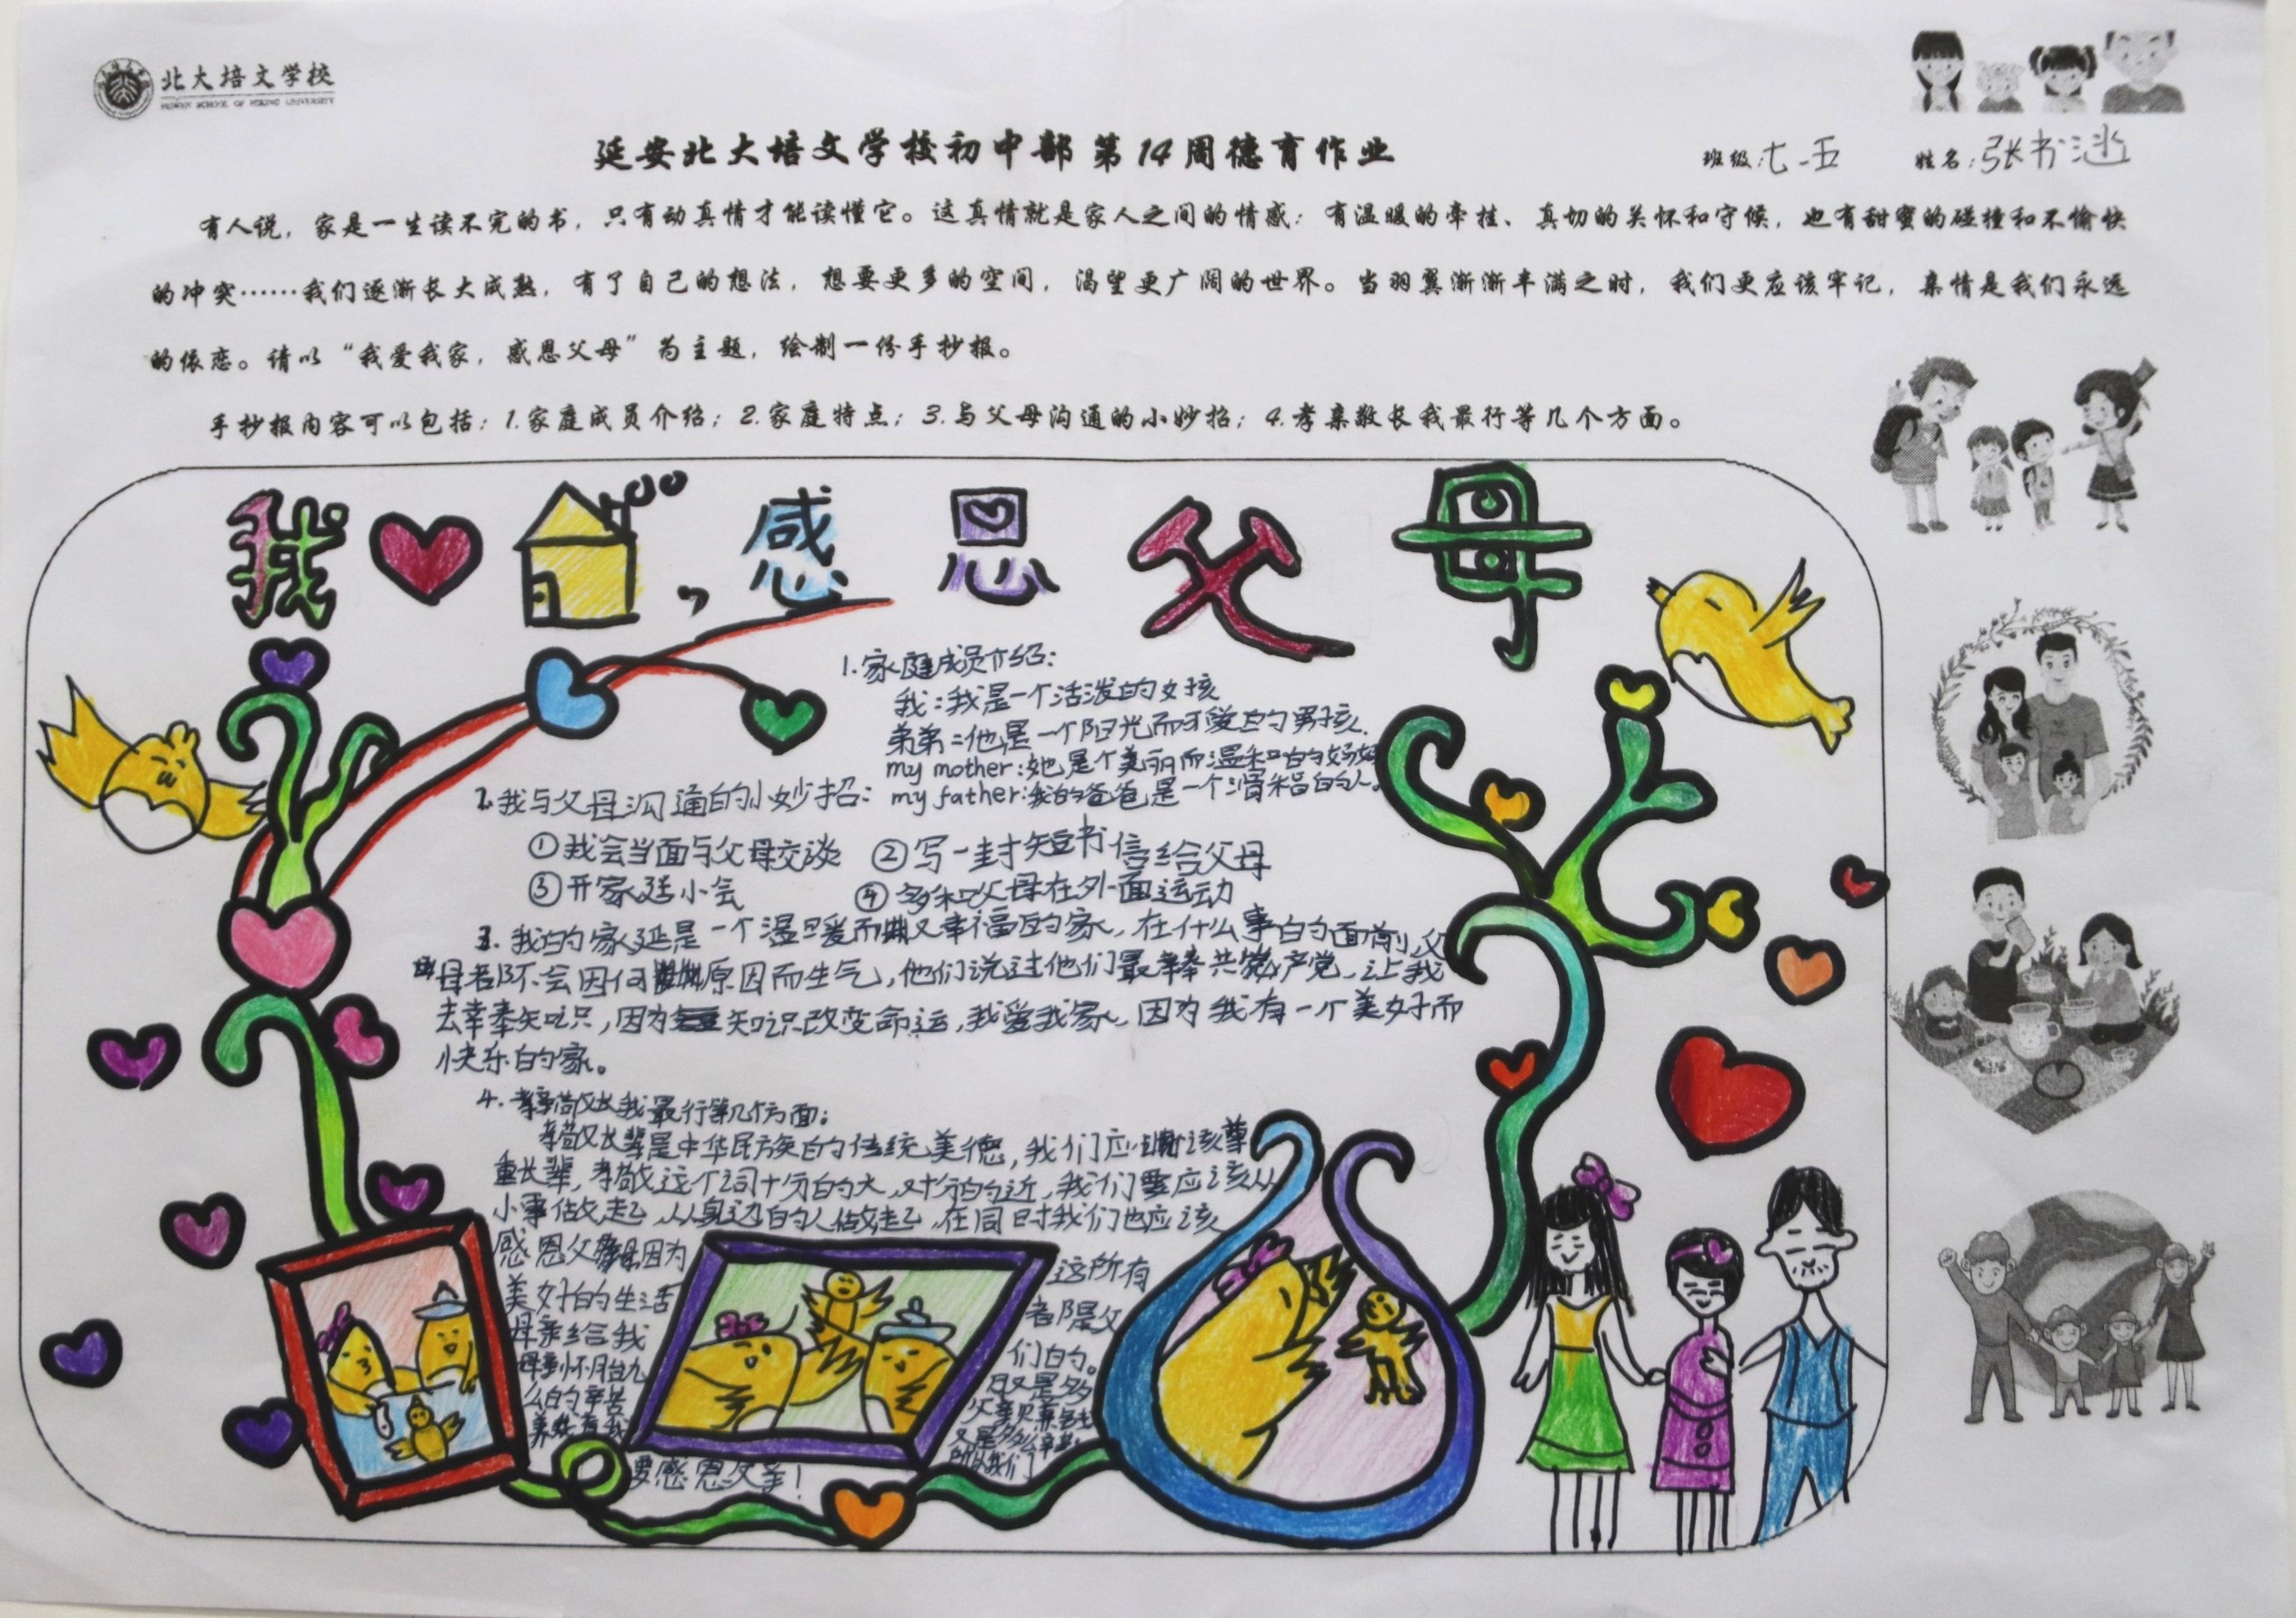 北大培文学校
PEIWEN SCHOOL OF PEKING UNIVERSITY
延安北大培文学校初中部第14周德育作业
班级:七.五 姓名:张书
有人说，家是一生读不完的书，只有动真情才能读懂它。这真情就是家人之间的情感：有温暖的牵挂、真切的关怀和守候，也有甜蜜的碰撞和不愉快
的冲突……我们逐渐长大成熟，有了自己的想法，想要更多的空间，渴望更广阔的世界。当羽翼渐渐丰满之时，我们更应该牢记，亲情是我们永远
的依恋。请以“我爱我家，感恩父母”为主题，绘制一份手抄报。
手抄报内容可以包括：1.家庭成员介绍；2.家庭特点；3.与父母沟通的小妙招；4.孝亲敬长我最行等几个方面。
我 ，感恩父母
1.家庭成员介绍：
我：我是一个活泼的女孩
弟弟：他是一个阳光而可爱的男孩.
my mother:她是个美丽而温和的妈妈
my father:我的爸爸是一个滑稽的人。
2.我与父母沟通的小妙招：
①我会当面与父母交谈 ②写一封短书信给父母
③开家庭小会 ④多和父母在外面运动
3.我的家庭是一个温暖而又幸福的家，在什么事的面前,父
母都不会因何原因而生气，他们说过他们最 共产党，让我
去 知识，因为知识改变命运，我爱我家，因为我有一个美好而
快乐的家。
4.孝亲敬长我最行等几个方面：
孝敬长辈是中华民族的传统美德，我们应该尊
重长辈，孝敬这个词十分的大，又十分的近，我们要应该从
小事做起，从身边的人做起，在同时我们也应该
感恩父母因为 这所有
美好的生活 都是父
母亲给我 们的。
怀胎九 月又是多
么的辛苦 父亲
养我 又是多么辛苦
所以我们
要感恩父亲！